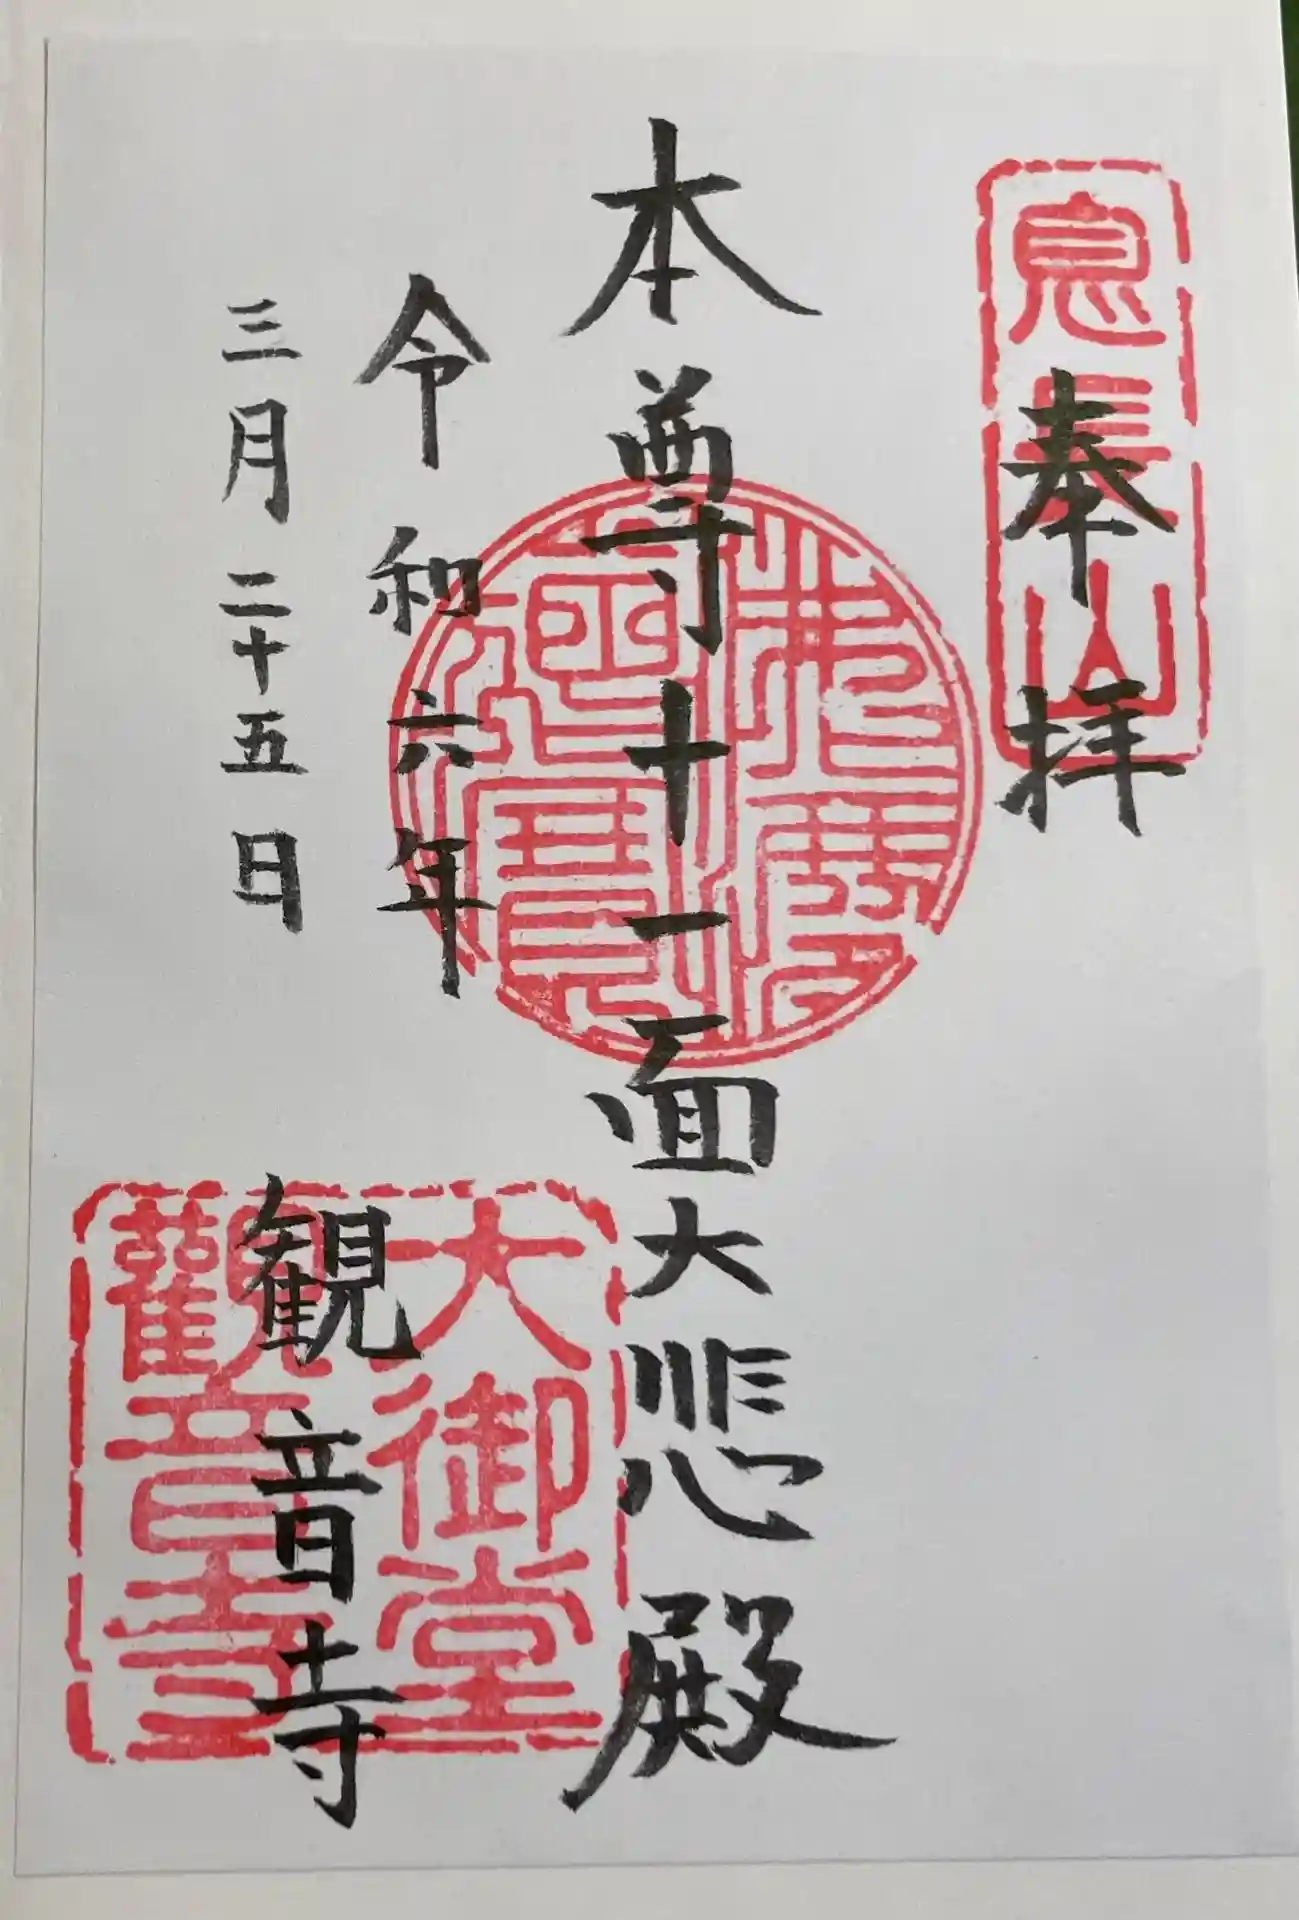 息長山
奉拝
本尊十一面大悲殿
佛法僧寶
令和六年
三月二十五日
大御堂
觀音寺
観音寺